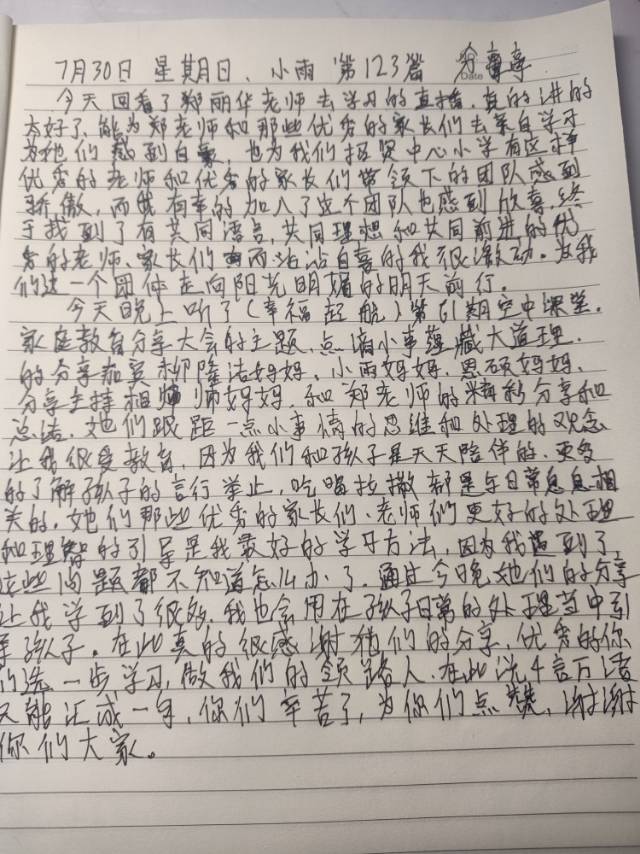 7月30日 星期日、小雨 第123篇 分享
Date
今天回看了郑丽华老师去学习的直播,真的讲的
太好了、能为郑老师和那些优秀的家长们去亲自学习
为他们感到自豪,也为我们招贤中心小学有这样
优秀的老师和优秀的家长们带领下的团队感到
骄傲,而我有幸的加入了这个团队也感到欣喜.终
于找到了有共同语言,共同理想和共同前进的优
秀的老师、家长们而沾沾自喜的我很激动.为我
们这一个团体走向阳光明媚的明天前行.
今天晚上听了(幸福起航)第61期空中课堂.
家庭教育分享大会的主题.点滴小事蕴藏大道理.
的分享嘉宾柳隆洁妈妈,小雨妈妈.恩硕妈妈.
分享主持相师妈妈.和郑老师的精彩分享和
总结.她们跟距一点小事情的思维和处理的观念
让我很受教育,因为我们和孩子是天天陪伴的.更多
的了解孩子的言行举止,吃喝拉撒都是与日常息息相
关的.她们那些优秀的家长们、老师们更好的处理
和理智的引导是我最好的学习方法,因为我遇到了
这些问题都不知道怎么办了.通过今晚她们的分享
让我学到了很多.我也会用在孩子日常的处理当中引
导孩子.在此真的很感谢她们的分享,优秀的你
们先一步学习,做我们的领路人.在此说千言万语
又能汇成一句,你们辛苦了,为你们点赞,谢谢
你们大家。